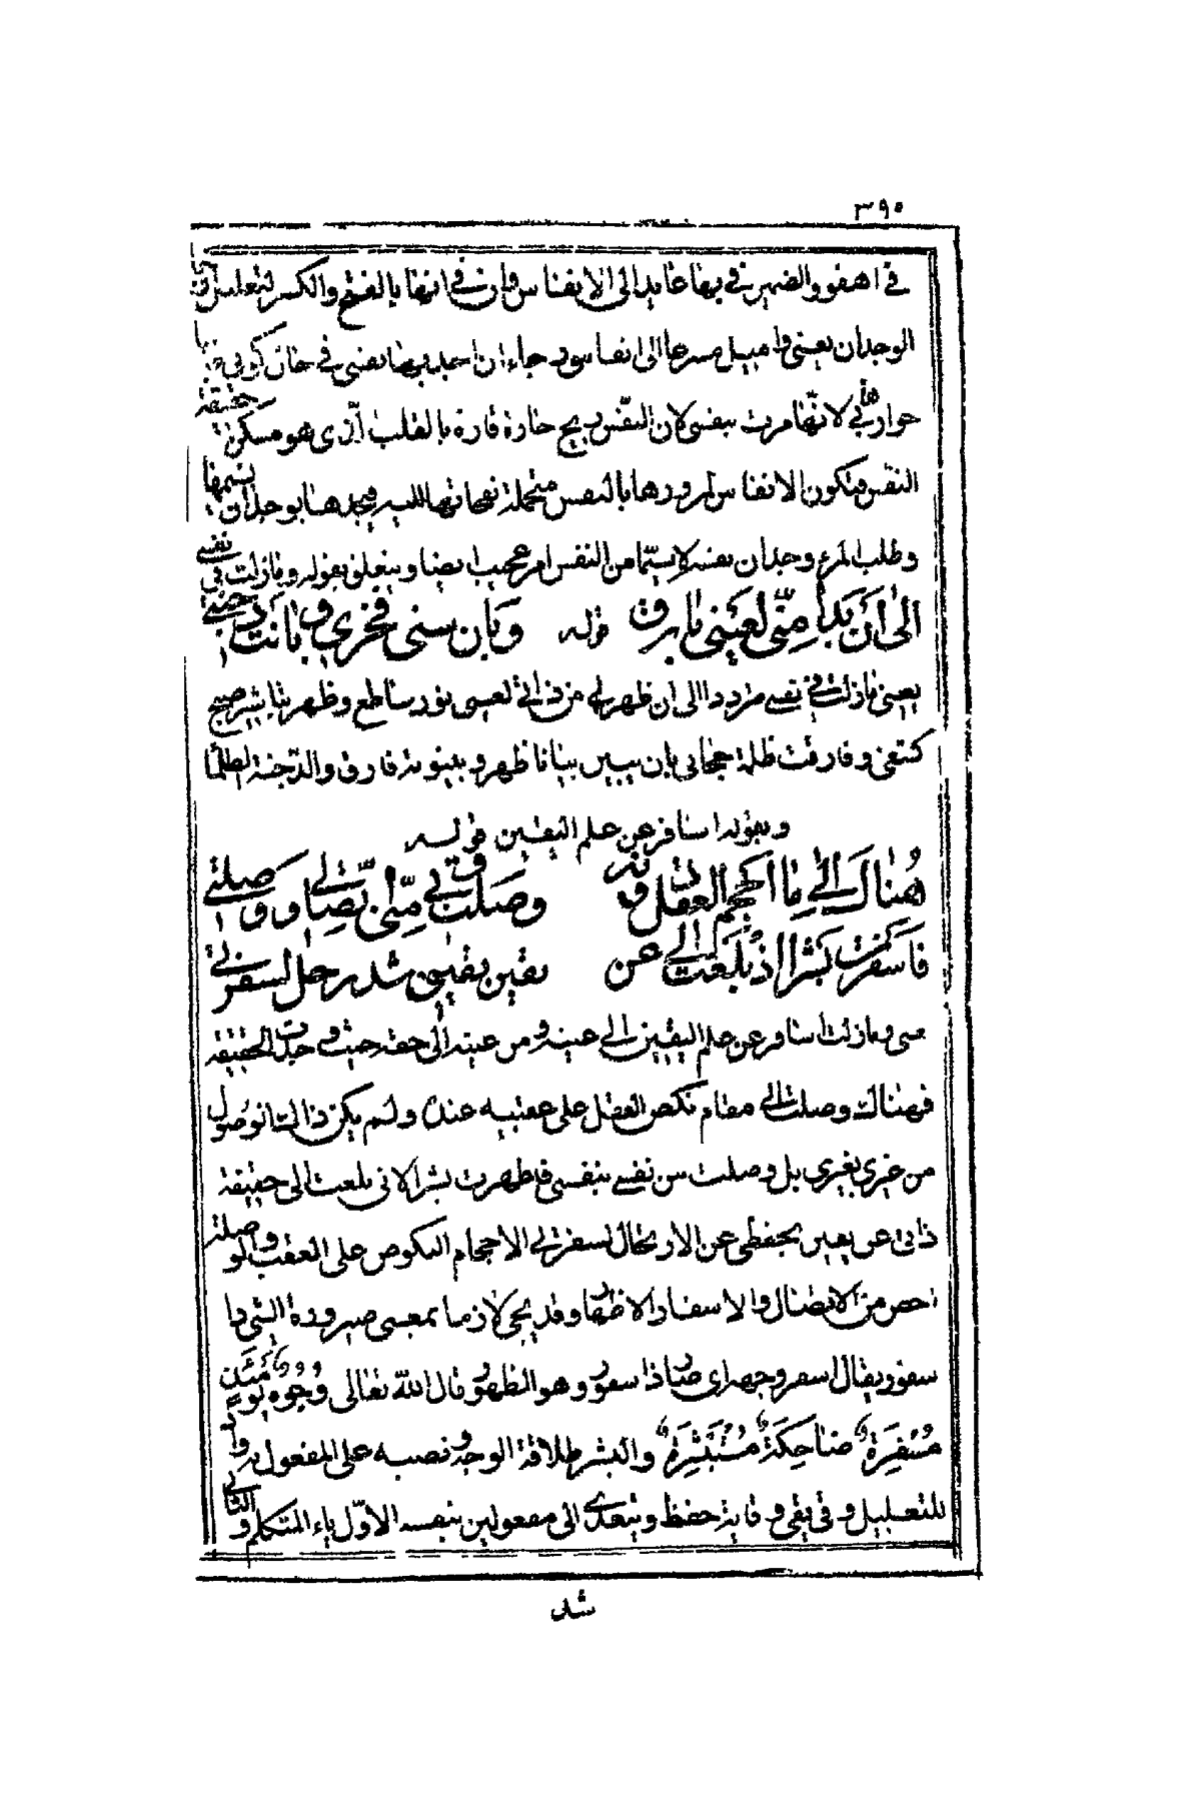 ٣٩٠
في اهفو والضمير في بها عايد الى الانفاس وان في انها بالفتح والكسر لتعليل
الوجدان يعني واميل مسرعا الى انفاسي رجاء ان اجد بها نفسي في
حواري لانها مرت بنفسي لان النفس ريح حارة قارة بالقلب الذي هو مسكن حقيقة
النفس فيكون الانفاس لمرورها بالنفس متحملة نفحاتها اليه فيجدها بوجدان نسيمها
وطلب المرء وجدان نفسه لا سيما من النفس امر عجيب ايضا ويتعلق بقوله وما زلت في نفسي
الى أن بدا منّي لعيني بارق قوله وبان سنى فجري وبانت دجنتي
يعني ما زلت في نفسي مترددا الى ان ظهر لي من ذاتي لعيني نور ساطع وظهر تباشير صبح
كشفي وفارقت ظلمة حجابي بان يبين بيانا ظهر وبينونة فارق والدجنة الظلماء
وبقوله اسافر عن علم اليقين قوله
هناك الى ما احجم العقل دونه وصلت وبي منّي اتّصالي ووصلتي
فاسفرت بشرا اذ بلغت الي عن يقين يقيني شد رحل لسفرتي
يعني وما زلت اسافر عن علم اليقين الى عينه ومن عينه الى حقه حيث وجدت الحقيقة
فهناك وصلت الى مقام نكص العقل على عقبيه عنده ولم يكن ذالك الوصول
من غيري بغيري بل وصلت من نفسي بنفسي فاظهرت بشرا لاني بلغت الى حقيقة
ذاتي عن يقين يحفظني عن الارتحال لسفرتي الاحجام النكوص على العقب والوصلة
اخص من الاتصال والاسفار الاظهار وقد يجئ لازما بمعنى صيرورة الشئ ذا
سفور يقال اسفر وجهه اي صار ذا سفور وهو الظهور قال الله تعالى وُجُوه يومئذ
مُسْفِرَةٌ ضاحِكَةٌ مُسْتَبْشِرَةٌ والبشر طلاقة الوجه ونصبه على المفعول به واذ
للتعليل وقى يقي وقاية حفظ ويتعدى الى مفعولين بنفسه الاول ياء المتكلم والثاني
شد